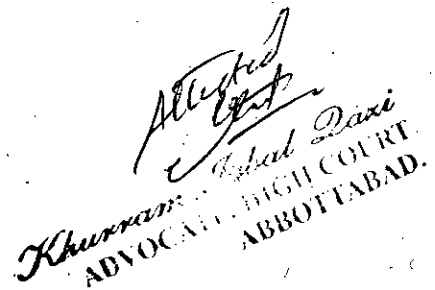 Attested
Khurram Iqbal Qazi
ADVOCATE, HIGH COURT
ABBOTTABAD.